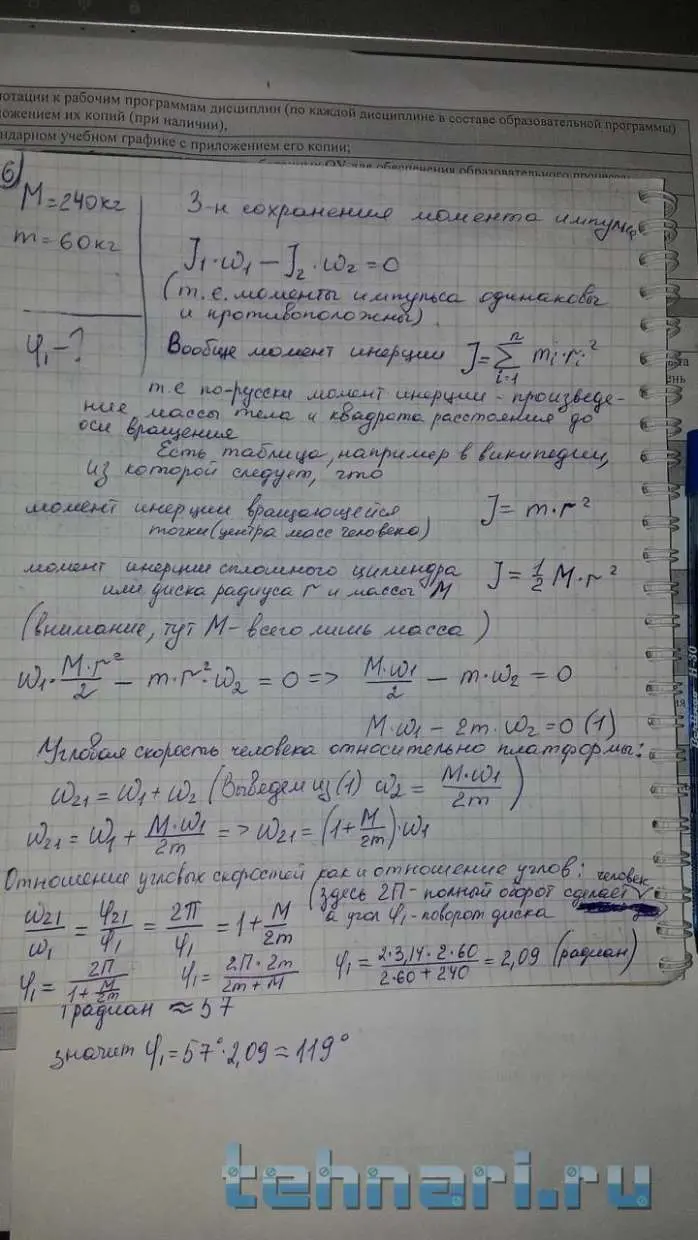 нотации к рабочим программам дисциплин (по каждой дисциплине в составе образовательной программы)
ложением их копий (при наличии),
ндарном учебном графике с приложением его копии;
6)
M=240кг
m=60кг
φ₁-?
З-н сохранения момента импульс
J₁·ω₁-J₂·ω₂=0
(т.е. моменты импульса одинаковы
и противоположны)
Вообще момент инерции J=∑ⁿᵢ₌₁ mᵢ·rᵢ²
т.е по-русски момент инерции - произведе-
ние массы тела и квадрата расстояния до
оси вращения
Есть таблица, например в википедии,
из которой следует, что
момент инерции вращающейся J=m·r²
точки (центра масс человека)
момент инерции сплошного цилиндра J=½M·r²
или диска радиуса r и массы M
(внимание, тут M- всего лишь масса)
ω₁·M·r²/2 - m·r²·ω₂=0=> M·ω₁/2 - m·ω₂=0
M·ω₁-2m·ω₂=0 (1)
Угловая скорость человека относительно платформы:
ω₂₁=ω₁+ω₂ (Выведем из (1) ω₂=M·ω₁/2m)
ω₂₁=ω₁+M·ω₁/2m=>ω₂₁=(1+M/2m)·ω₁
Отношение угловых скоростей как и отношение углов:
(здесь 2П- полный оборот сделает человек
а угол φ₁-поворот диска
ω₂₁/ω₁=φ₂₁/φ₁=2П/φ₁=1+M/2m
φ₁=2П/(1+M/2m) φ₁=2П·2m/(2m+M) φ₁=2·3,14·2·60/(2·60+240)=2,09 (радиан)
1 радиан ≈57
значит φ₁=57°·2,09=119°
tehnari.ru